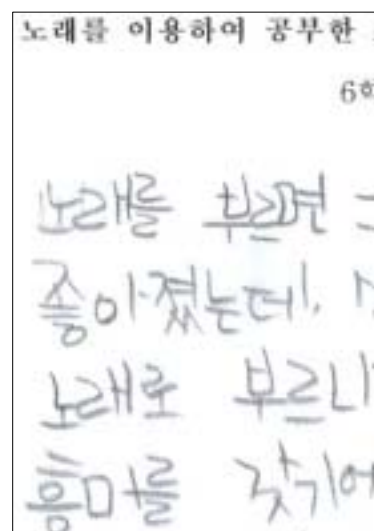 노래를 이용하여 공부한
6학
노래를 부르면
좋아졌는데,
노래로 부르니
흥미를 갖기에